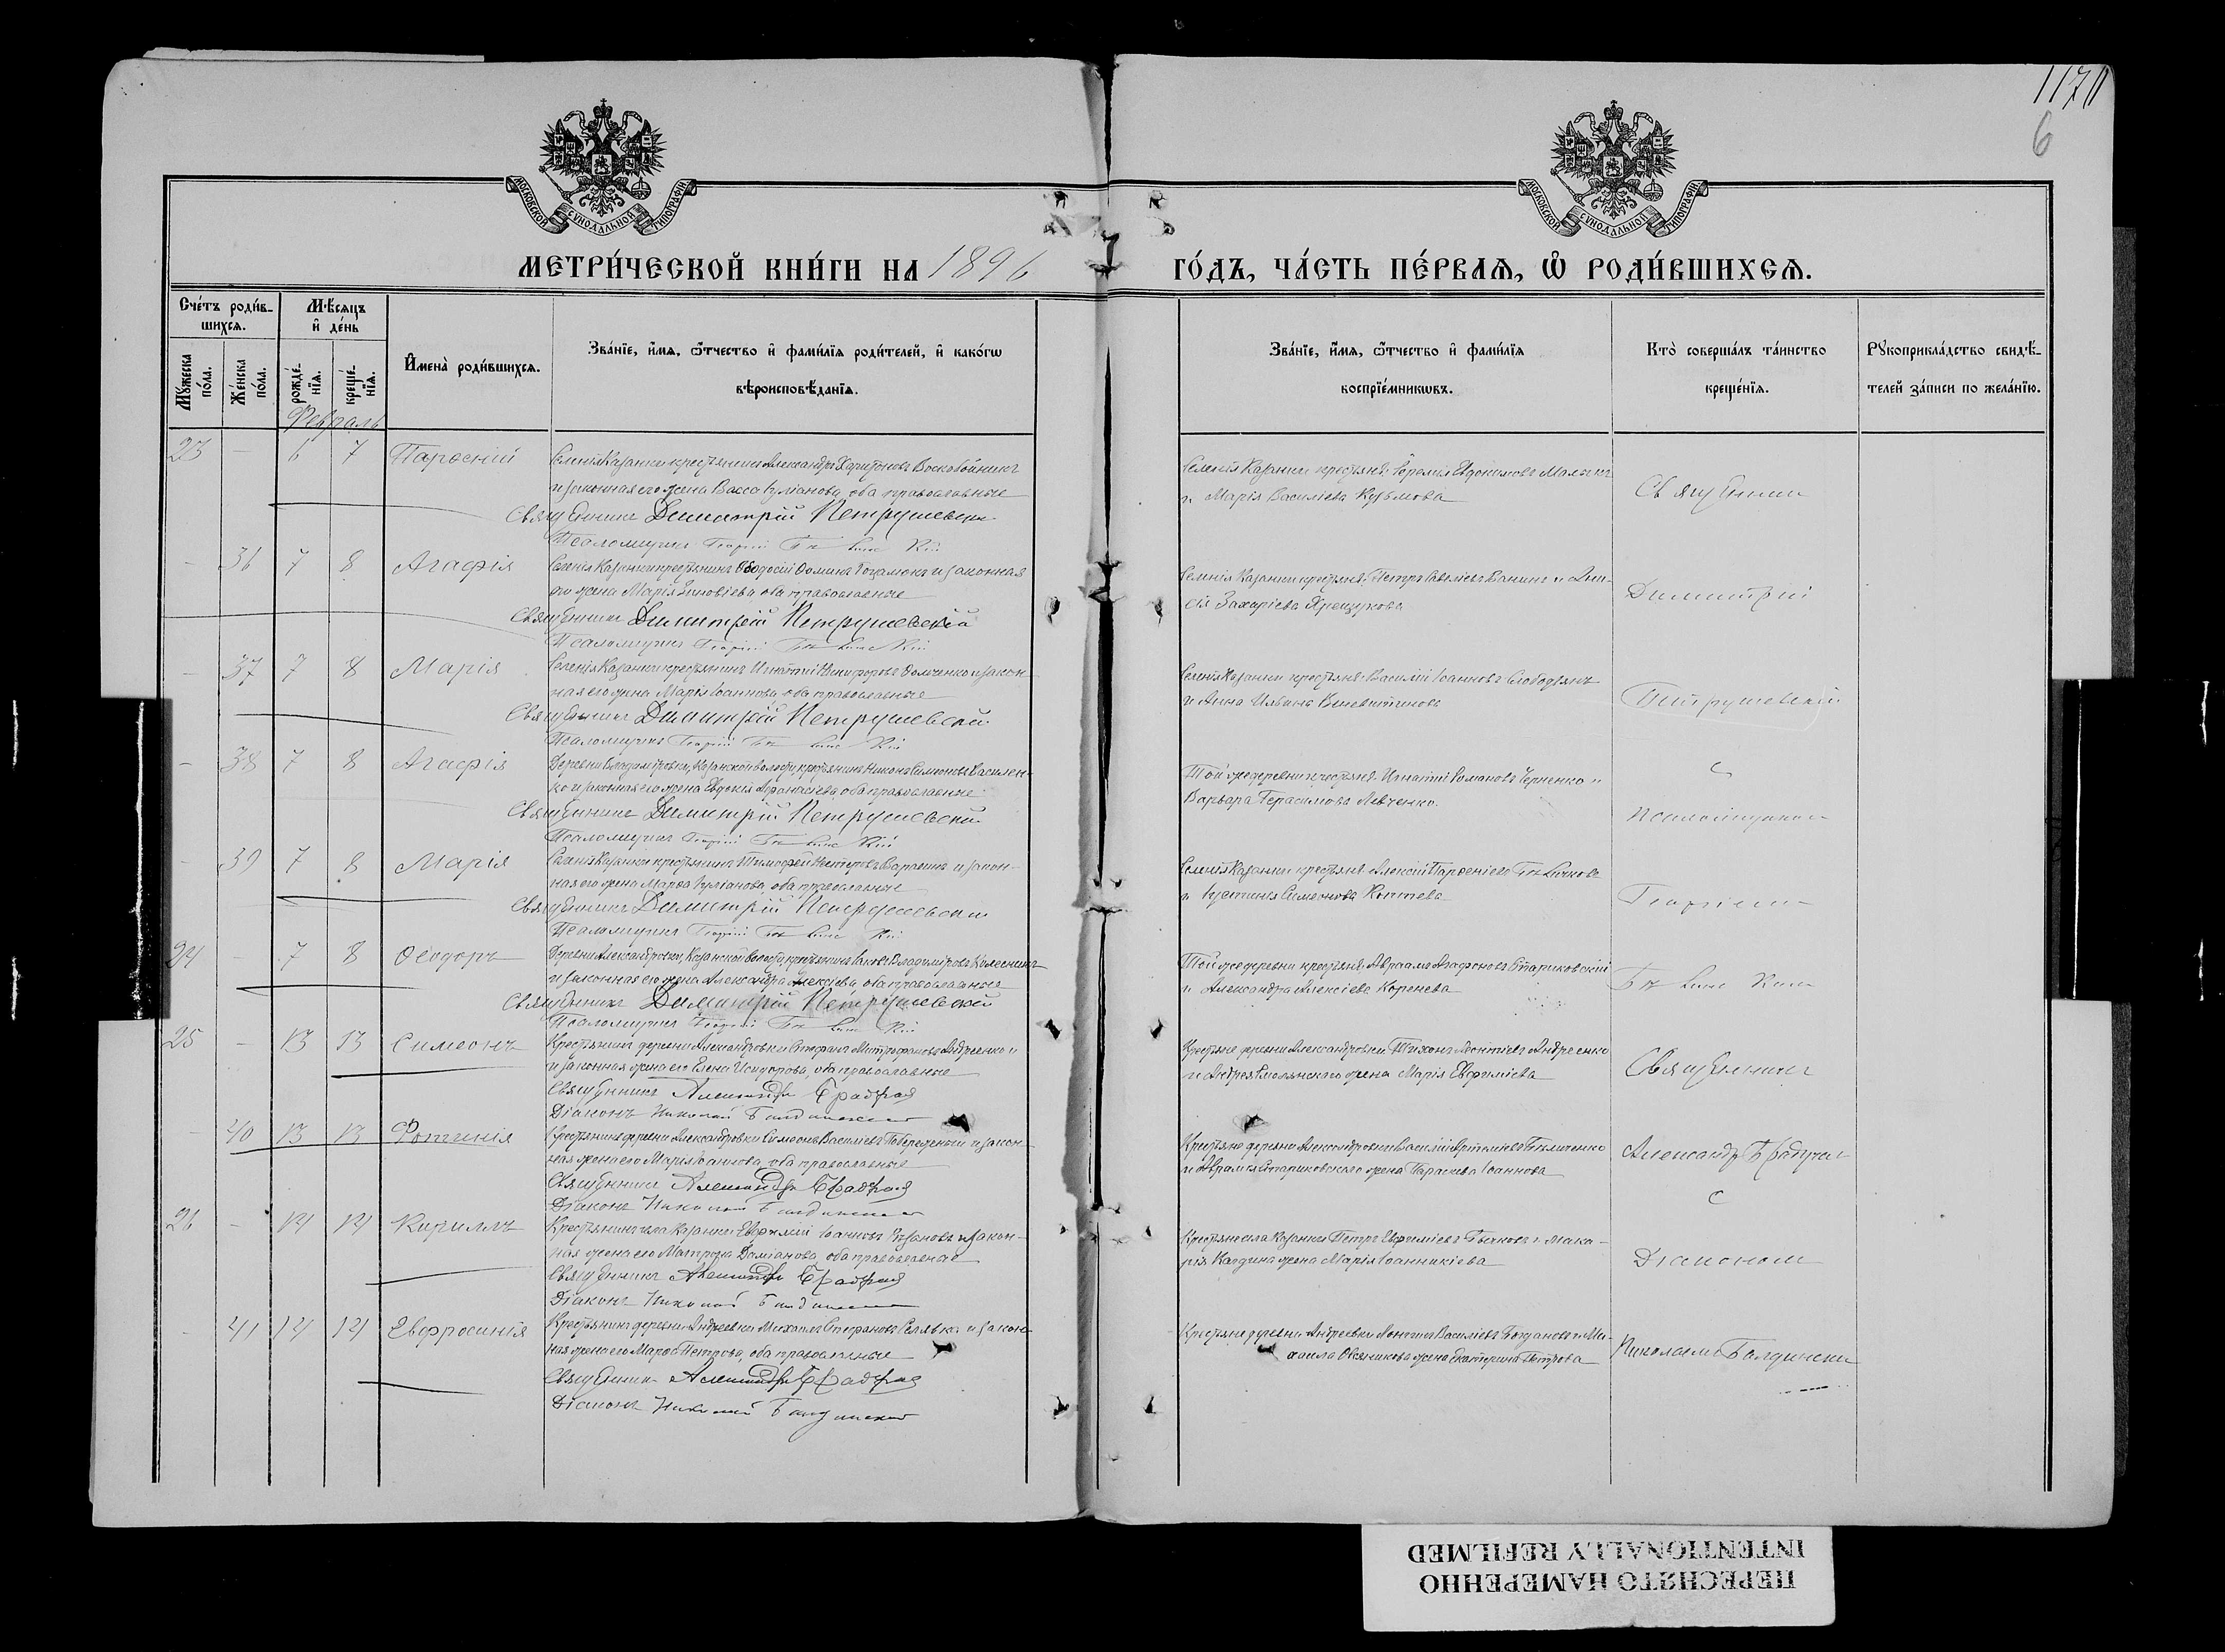 117
6
МОСКОВСКОЙ СУНОДАЛЬНОЙ ТИПОГРАФІИ
МОСКОВСКОЙ СУНОДАЛЬНОЙ ТИПОГРАФІИ
МЕТРИ́ЧЕСКОЙ КНИ́ГИ НА 1896 ГО́ДЪ, ЧА́СТЬ ПЕ́РВАѦ, Ѡ РОДИ́ВШИХСѦ.
Сче́тъ роди́в-
шихсѧ.
Мꙋжеска по́ла.
Же́нска по́ла.
Мѣ́сѧцъ
и҆ де́нь
рожде́-
нїѧ.
креще́-
нїѧ.
Февраль
И҆мена̀ роди́вшихсѧ.
Зва́нїе, и҆́мѧ, ѻ҆́тчество и҆ фами́лїѧ роди́телей, и҆ како́гѡ
вѣроисповѣ́данїѧ.
Зва́нїе, и҆́мѧ, ѻ҆́тчество и҆ фами́лїѧ
воспрїе́мникѡвъ.
Кто̀ соверша́лъ та́инство
креще́нїѧ.
Рꙋкоприкла́дство свидѣ́-
телей за́писи по жела́нїю.
23 - 6 7 Парѳеній
Селенія Казанки крестьянинъ Александръ Харитоновъ Воскобойникъ
и законная его жена Васса Іуліанова, оба православные
Священникъ Димитрій Петрушевскій
Псаломщикъ Георгій
Селенія Казанки крестьяне: Іеремія Евдокимовъ
и Марія Васильева Кузьмова
Священникъ
- 36 7 8 Агафія
Селенія Казанки крестьянинъ Ѳеодосій Ѳоминъ и законная
его жена Марія Зиновіева, оба православные
Священникъ Димитрій Петрушевскій
Псаломщикъ Георгій
Селенія Казанки крестьяне: Петръ Савеліевъ Ванинъ и Ани-
сія Захаріева
Димитрій
- 37 7 8 Марія
Селенія Казанки крестьянинъ Игнатій Никифоровъ Ѳомченко и закон-
ная его жена Марія Іоаннова, оба православные
Священникъ Димитрій Петрушевскій
Псаломщикъ Георгій
Селенія Казанки крестьяне: Василій Іоанновъ Слободянъ
и Анна Ильина
Петрушевскій
- 38 7 8 Агафія
Деревни Владиміровки, Казанской волости, крестьянинъ Никонъ Симеоновъ Василен-
ко и законная его жена Евдокія Аѳанасіева, оба православные
Священникъ Димитрій Петрушевскій
Псаломщикъ Георгій
Той же деревни крестьяне: Игнатій Романовъ Черненко и
Варвара Герасимова Левченко.
с
псаломщикомъ
- 39 7 8 Марія
Селенія Казанки крестьянинъ Тимофей Несторовъ и закон-
ная его жена Марѳа Іуліанова, оба православные
Священникъ Димитрій Петрушевскій
Псаломщикъ Георгій
Селенія Казанки крестьяне: Алексій Парѳеніевъ
и Іустинія Симеонова Коптева
Георгіемъ
24 - 7 8 Ѳеодоръ
Деревни Александровки, Казанской волости, крестьянинъ Іаковъ Владиміровъ Колесникъ
и законная его жена Александра Алексіева, оба православные
Священникъ Димитрій Петрушевскій
Псаломщикъ Георгій
Той же деревни крестьяне: Авраамъ Агафоновъ Стариковскій
и Александра Алексіева Коренева
25 - 13 13 Симеонъ
Крестьянинъ деревни Александровки Стефанъ Митрофановъ Андреенко
и законная жена его Елена Исидорова, оба православные
Священникъ Александръ
Діаконъ Николай Балдинскій
Крестьяне деревни Александровки Тихонъ Леонтіевъ Андреенко
и Андрея Смолянскаго жена Марія Евфиміева
Священникъ
- 40 13 13 Фотинія
Крестьянинъ деревни Александровки Симеонъ Васильевъ Побережный и закон-
ная жена его Марія Іоаннова, оба православные
Священникъ Александръ
Діаконъ Николай Балдинскій
Крестьяне деревни Александровки Василій Артеміевъ
и Аврамія Стариковскаго жена Параскева Іоаннова
Александръ
с
26 - 14 14 Кириллъ
Крестьянинъ села Казанки Евфимій Іоанновъ и закон-
ная жена его Матрона Даміанова, оба православные
Священникъ Александръ
Діаконъ Николай Балдинскій
Крестьяне села Казанки Петръ Евфиміевъ Бычковъ и Мака-
рія жена Марія Іоанникіева
Діакономъ
- 41 14 14 Евфросинія
Крестьянинъ деревни Андреевки Михаилъ Стефановъ и закон-
ная жена его Марѳа Петрова, оба православные
Священникъ Александръ
Діаконъ Николай Балдинскій
Крестьяне деревни Андреевки Василіевъ Богдановъ и Ми-
хаила Овсяникова жена Екатерина Петрова
Николаемъ Балдинскимъ
ПЕРЕСНЯТО НАМЕРЕННО
INTENTIONALLY REFILMED